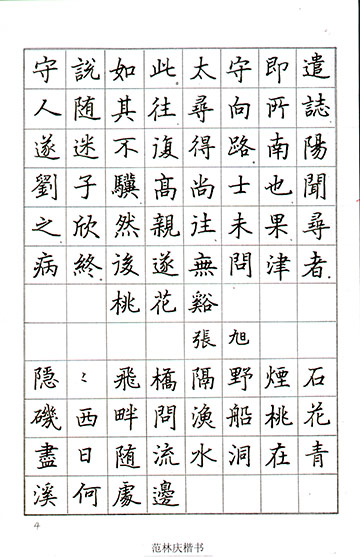 守說如此太守即遣
人随其往尋向所誌
遂迷不復得路南陽
劉子驥高尚士也聞
之欣然親往未果尋
病終後遂無問津者
桃花谿
張旭
隠〻飛橋隔野煙石
磯西畔問漁船桃花
盡日随流水洞在青
溪何處邊
4
范林庆楷书